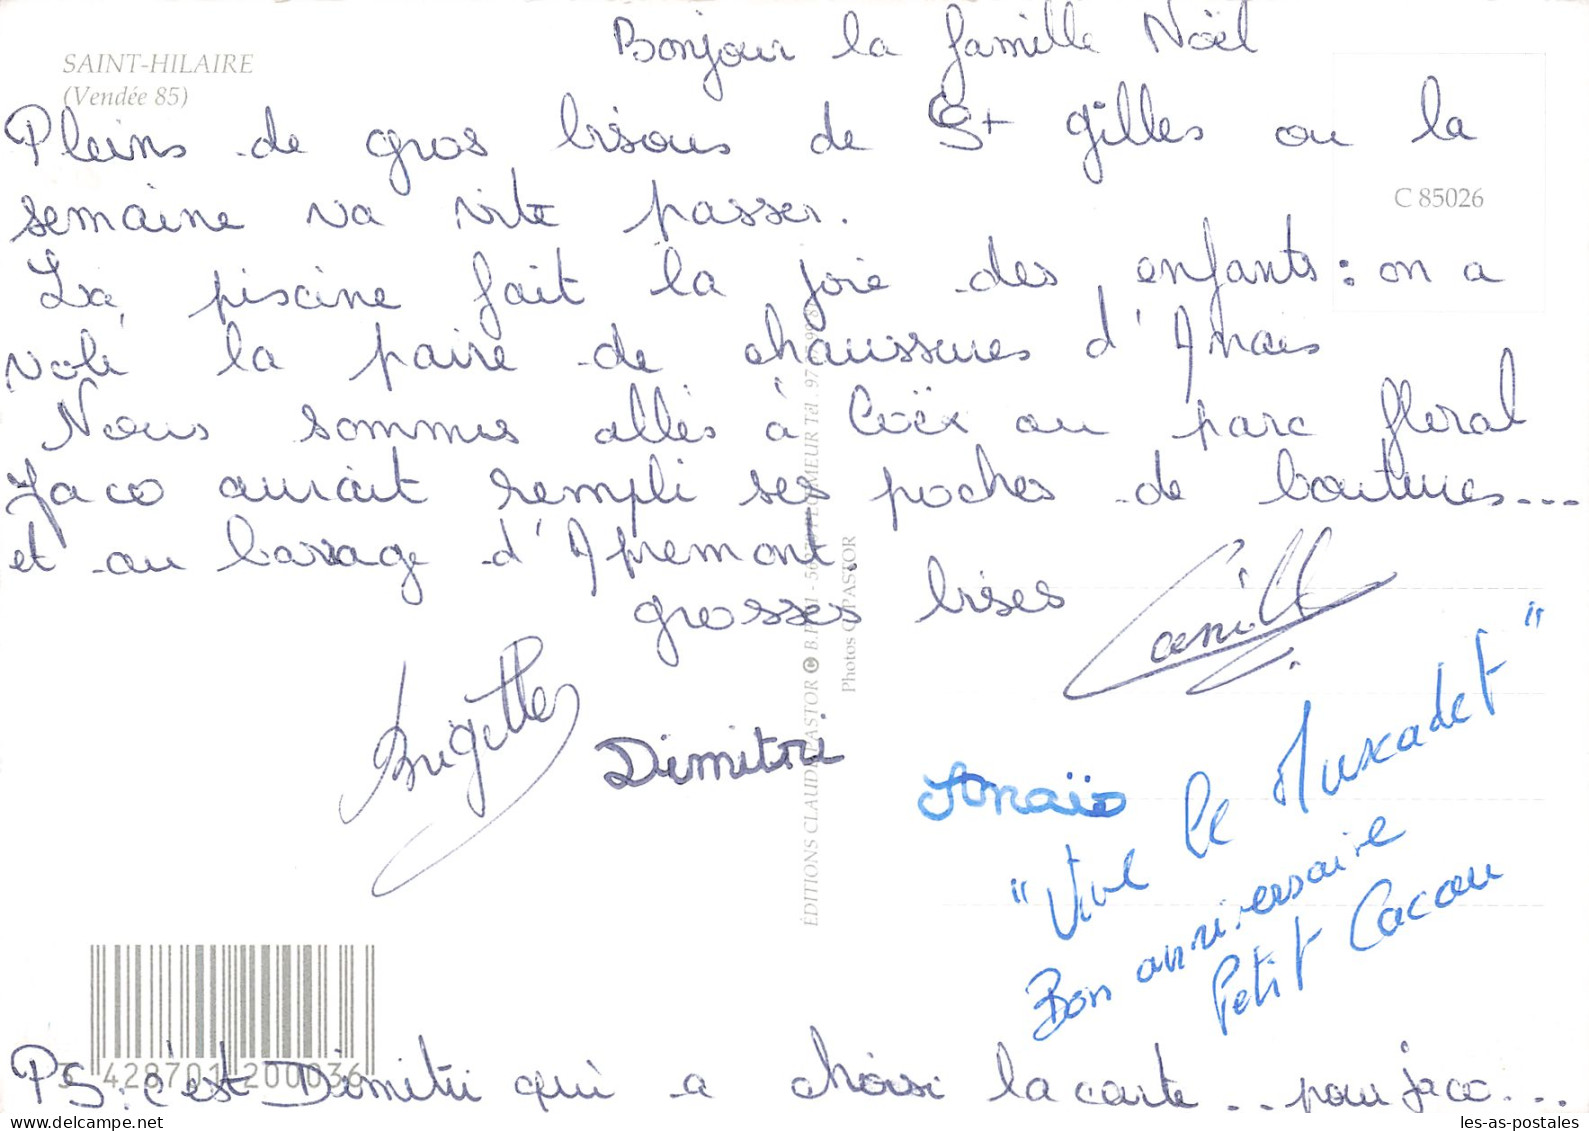 Bonjour la famille Noël
SAINT-HILAIRE
(Vendée 85)
Pleins de gros bisous de St gilles ou la
C 85026
semaine va vite passer.
La piscine fait la joie des enfants : on a
volé la paire de chaussures d'Anais
Nous sommes allés à Coëx au parc floral
Jaco aurait rempli ses poches de boutures...
et au barrage d'Apremont.
grosses bises
Camille
Brigitte
Dimitri
Anaïs
"Vive le Muscadet"
Bon anniversaire
Petit Cacou
ÉDITIONS CLAUDE PASTOR © B.P.
Photos C. PASTOR
3 428701 200036
PS : c'est Dimitri qui a choisi la carte... pour jaco...
les-as-postales